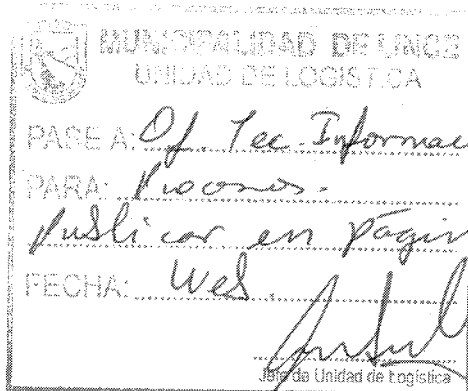 MUNICIPALIDAD DE LINCE
UNIDAD DE LOGISTICA
PASE A: Of. Tec. Informac
PARA:
Publicar en págin
FECHA: Web.
Jefe de Unidad de Logística